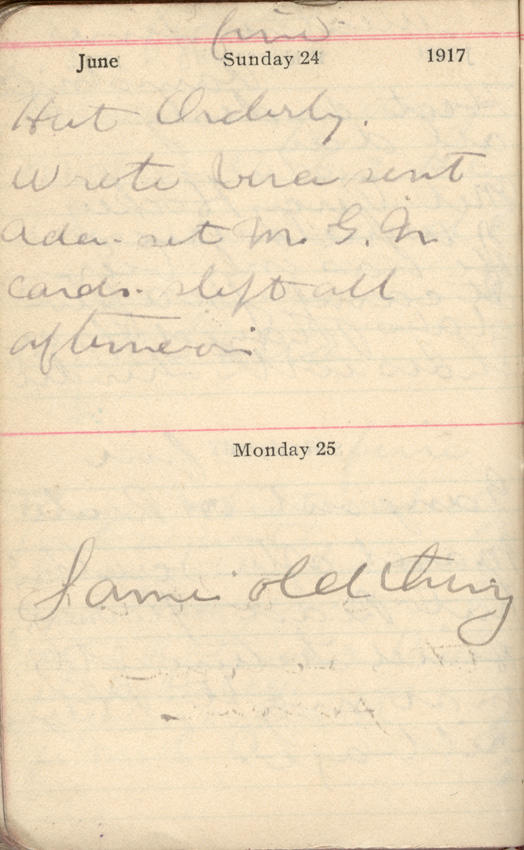 fine
June Sunday 24 1917
Hut Orderly.
Wrote Vera sent
Ada. set M. G. M.
cards. slept all
afternoon
Monday 25
Same old thing